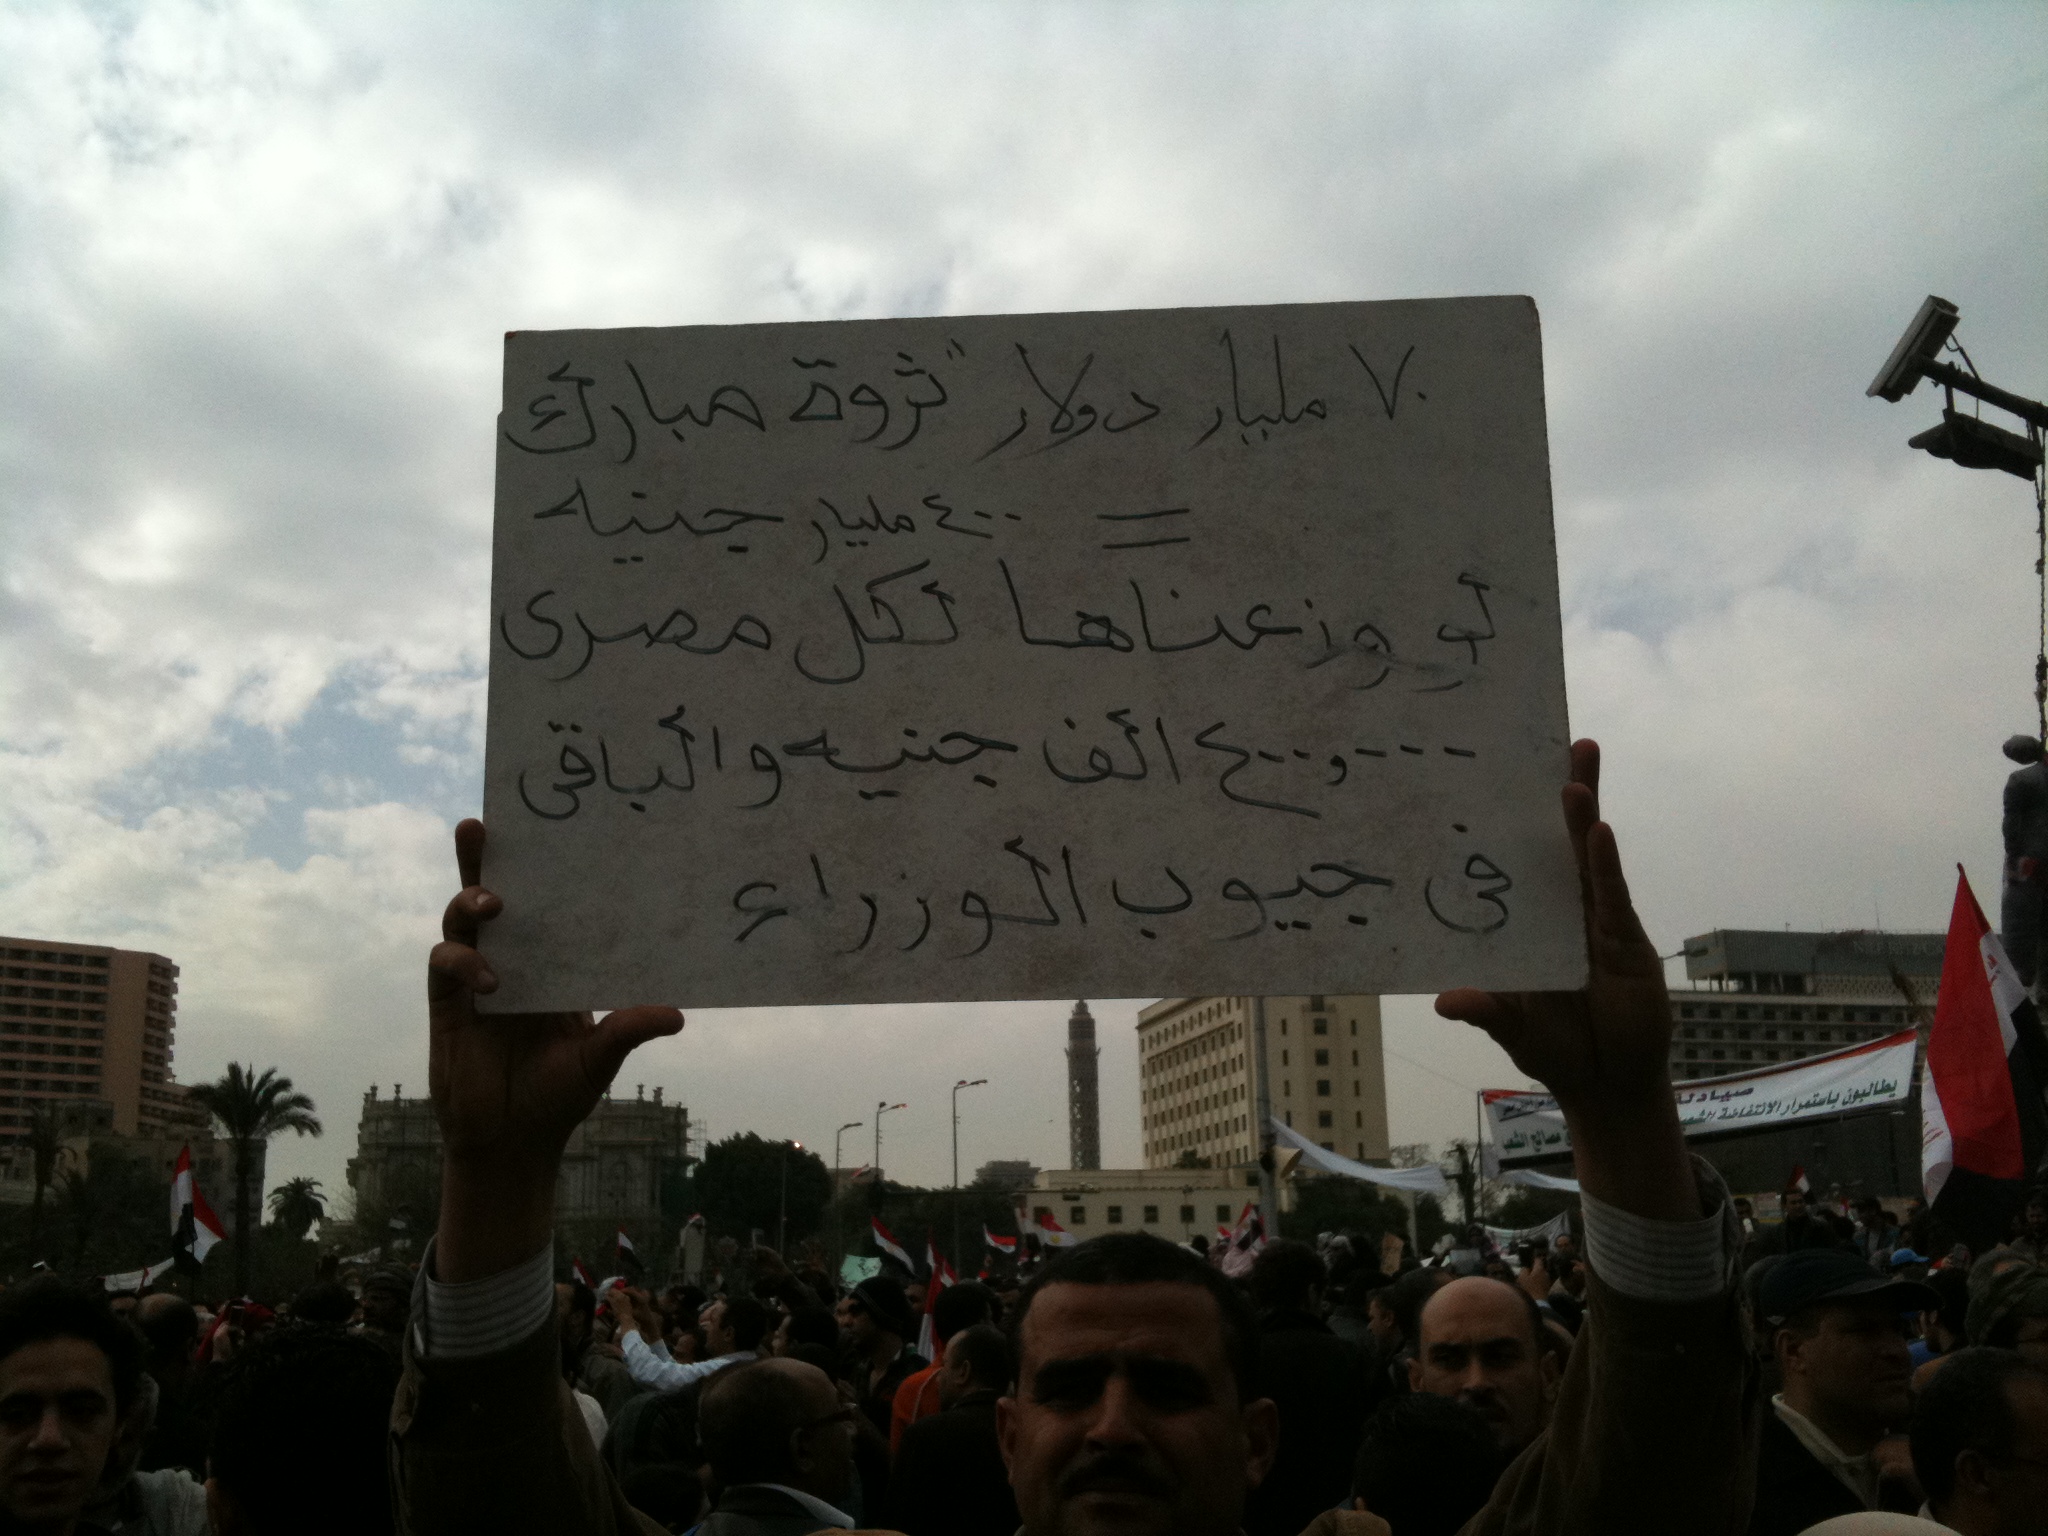 ٧٠ مليار دولار "ثروة مبارك
= ٤٠٠ مليار جنيه
لو وزعناها لكل مصرى
٤٠٠و٠٠٠ الف جنيه والباقى
فى جيوب الوزراء
صيادلة
يطالبون باستمرار الانتفاضة
مصالح الشعب